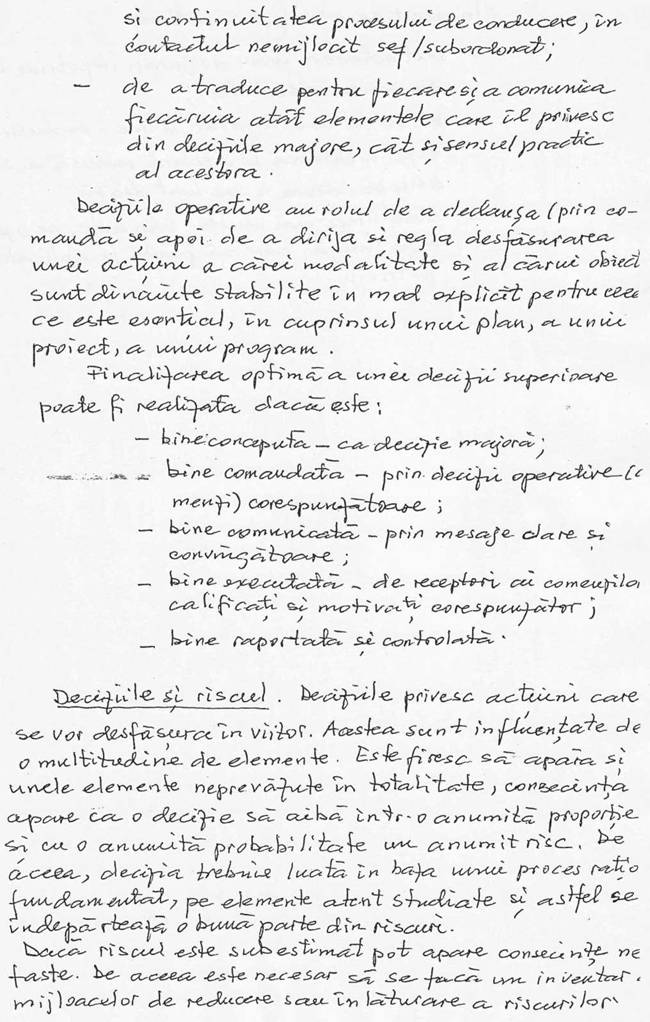 și continuitatea procesului de conducere, în
contactul nemijlocit șef/subordonat;
- de a traduce pentru fiecare și a comunica
fiecăruia atât elementele care îl privesc
din deciziile majore, cât și sensul practic
al acestora.
Deciziile operative au rolul de a declanșa (prin co-
mandă și apoi de a dirija și regla desfășurarea
unei acțiuni a cărei modalitate și al cărui obiect
sunt dinainte stabilite în mod explicit pentru ceea
ce este esențial, în cuprinsul unui plan, a unui
proiect, a unui program.
Finalizarea optimă a unei decizii superioare
poate fi realizată dacă este:
- bine concepută - ca decizie majoră;
bine comandată - prin decizii operative (c
menzi) corespunzătoare;
- bine comunicată - prin mesaje clare și
convingătoare;
- bine executată - de receptori ai comenzilo
calificați și motivați corespunzător;
- bine raportată și controlată.
Deciziile și riscul. Deciziile privesc acțiuni care
se vor desfășura în viitor. Acestea sunt influențate de
o multitudine de elemente. Este firesc să apară și
unele elemente neprevăzute în totalitate, consecința
apare ca o decizie să aibă într-o anumită proporție
și cu o anumită probabilitate un anumit risc. De
aceea, decizia trebuie luată în baza unui proces rațio
fundamentat, pe elemente atent studiate și astfel se
îndepărtează o bună parte din riscuri.
Dacă riscul este subestimat pot apare consecințe ne
faste. De aceea este necesar să se facă un inventar
mijloacelor de reducere sau înlăturare a riscurilor